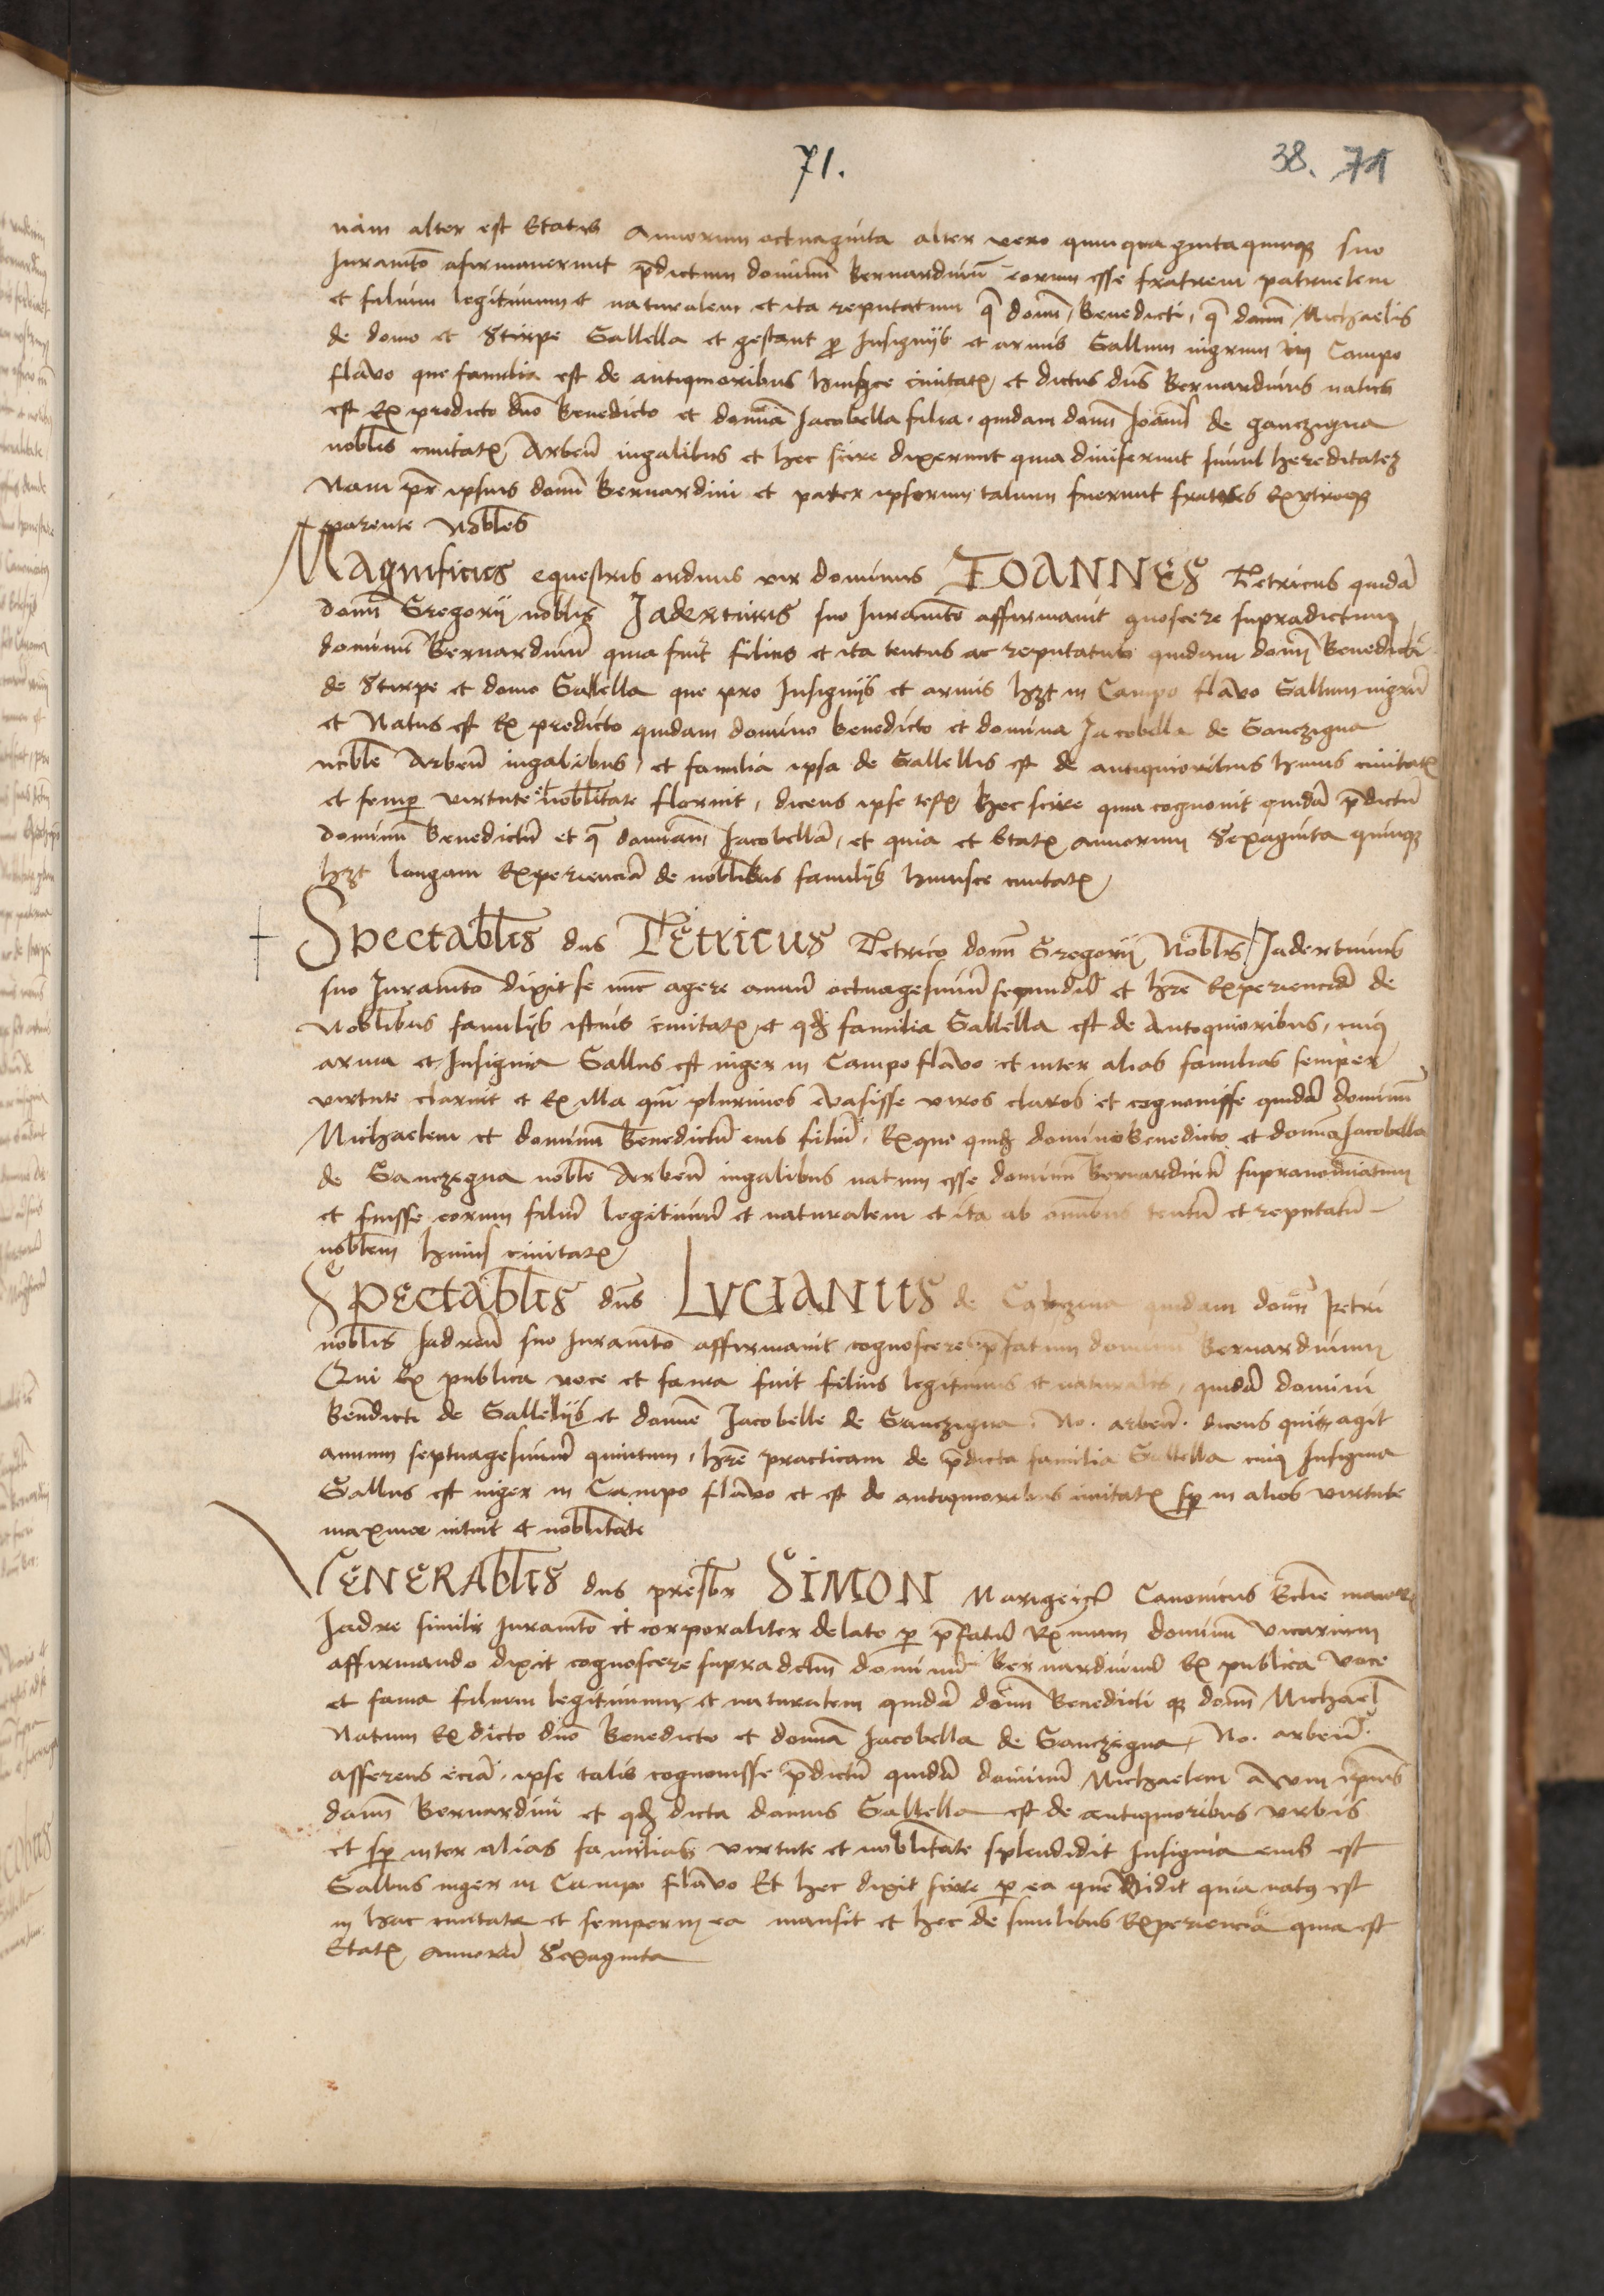 71.
38. 71
nam alter est Etatis Annorum octuaginta alter vero quinquagintaquinqꝫ suo
Juramto afirmauerunt p̄dictum dominū Bernardinū eorum esse fratrem patruelem
et filium legitimum et naturalem et ita reputatum q̄ domī Benedicti, q̄ domī Michaelis
de domo et Stirpe Gallella et gestant ꝓ Insignijs et armis Gallum nigrum in Campo
flavo que familia est de antiquioribus huiusce ciuitatꝭ et dictus dn̄s Bernardinus natus
est Ex predicto dn̄o Benedicto et domīa Jacobella filia quidam domī Joan̄is de ganczigna
noblis ciuitatꝭ Arben̄ iugalibus et hec scire dixerunt quia diuiserunt simul hereditateʒ
Nam pr̄ ipsius domī Bernardini et pater ipsorum talium fuerunt fratres Ex vtroqꝫ
parente Nobles
Magnificus equestris ordinis vir dominus IOANNES Detricus quidā
domī Gregorij noblis Jadertinus suo Juramto affirmauit gnoscere supradictum
dominū Bernardinū quia fuit filius et ita tentus ac reputatus quidam domī Benedicti
de Stirpe et domo Gallella que pro Insignijs et armis hꝫt in Campo flavo Gallum nigrū
et Natus est Ex predicto quidam domino benedicto et domina Jacobella de Ganczigna
noble Arben̄ iugalibus, et familia ipsa de Gallellis est de antiquioribus huius ciuitatꝭ
et semꝑ virtute et noblitate floruit, dicens ipse testꝭ hec scire quia cognouit quidā p̄dictū
dominū benedictū et q̄ domīam Jacobellā, et quia et Etatꝭ annorum Sexaginta quinqꝫ
hꝫt longam Experienciā de noblibus familijs huiusce ciuitatꝭ
Spectablis dns Detricus Detrico domī Gregorij Noblis Jadertinus
suo Juramto dixit se nūc agere annū octuagesimū secundū et hr̄e Experienciā de
Noblibus familijs istius ciuitatꝭ et qdʒ familia Gallella est de Antoquioribus, cuiꝰ
arma et Insignia Gallus est niger in Campo flavo et inter alias familias semper
virtute claruit et Ex illa qm̄ plurimos Euasisse viros claros et cognouisse quidā dominū
Michaelem et dominū Benedictū eius filiū, Ex quo quidʒ domino Benedicto et domīa Jacobella
de Ganczegna noble Arben̄ iugalibus natum esse dominū Bernardinū supranominatum
et fuisse eorum filiū legitimū et naturalem et ita ab omnibus tentū et reputatū
noblem huius ciuitatꝭ
Spectablis dn̄s LVCIANUS de quidam domī Petri
noblis Jadren̄ suo Juramto affirmauit cognoscere p̄fatum dominū Bernardinum
Qui Ex publica voce et fama fuit filius legitimus et naturales, quidā domini
Bendicti de Gallelijs et domīe Jacobelle de Ganczigna. No. arben̄. dicens quia agit
annum septuagesimū quintum, hr̄e practicam de p̄dicta familia Gallella cuiꝰ Insignia
Gallus est niger in Campo flavo et est de antiquioribus ciuitatꝭ sꝑ in alios virtute
maxime nituit et noblitate
VENERAblis dns presbr SIMON Canonicus Eclie maioris
Jadre similr Juramto et corporaliter delato ꝑ p̄fatū Rx̄mum dominū vicarium
affirmando dixit cognoscere supradctm̄ dominū Bernardinū Ex publica voce
et fama filium legitimum et naturalem quidā domī Benedicti qꝫ domī Michael̄
Natum Ex dicto dno Benedicto et domīa Jacobella de Ganczegna, No. arben̄.
asserens eciā ipse talis cognouisse p̄dictū quidā dominū Michaelem avum ipsius
domī Bernardini et qdʒ dicta domus Gallella est de antiquioribus vrbis
et sꝑ inter alias familias virtute et noblitate splendidit Insignia eius est
Gallus niger in Campo flavo Et hec dixit scire ꝑ ea que vidit quia natꝰ est
in hac ciuitate et semper in ea mansit et hec de similibus Experienciā quia est
Etatꝭ annorū Sexaginta